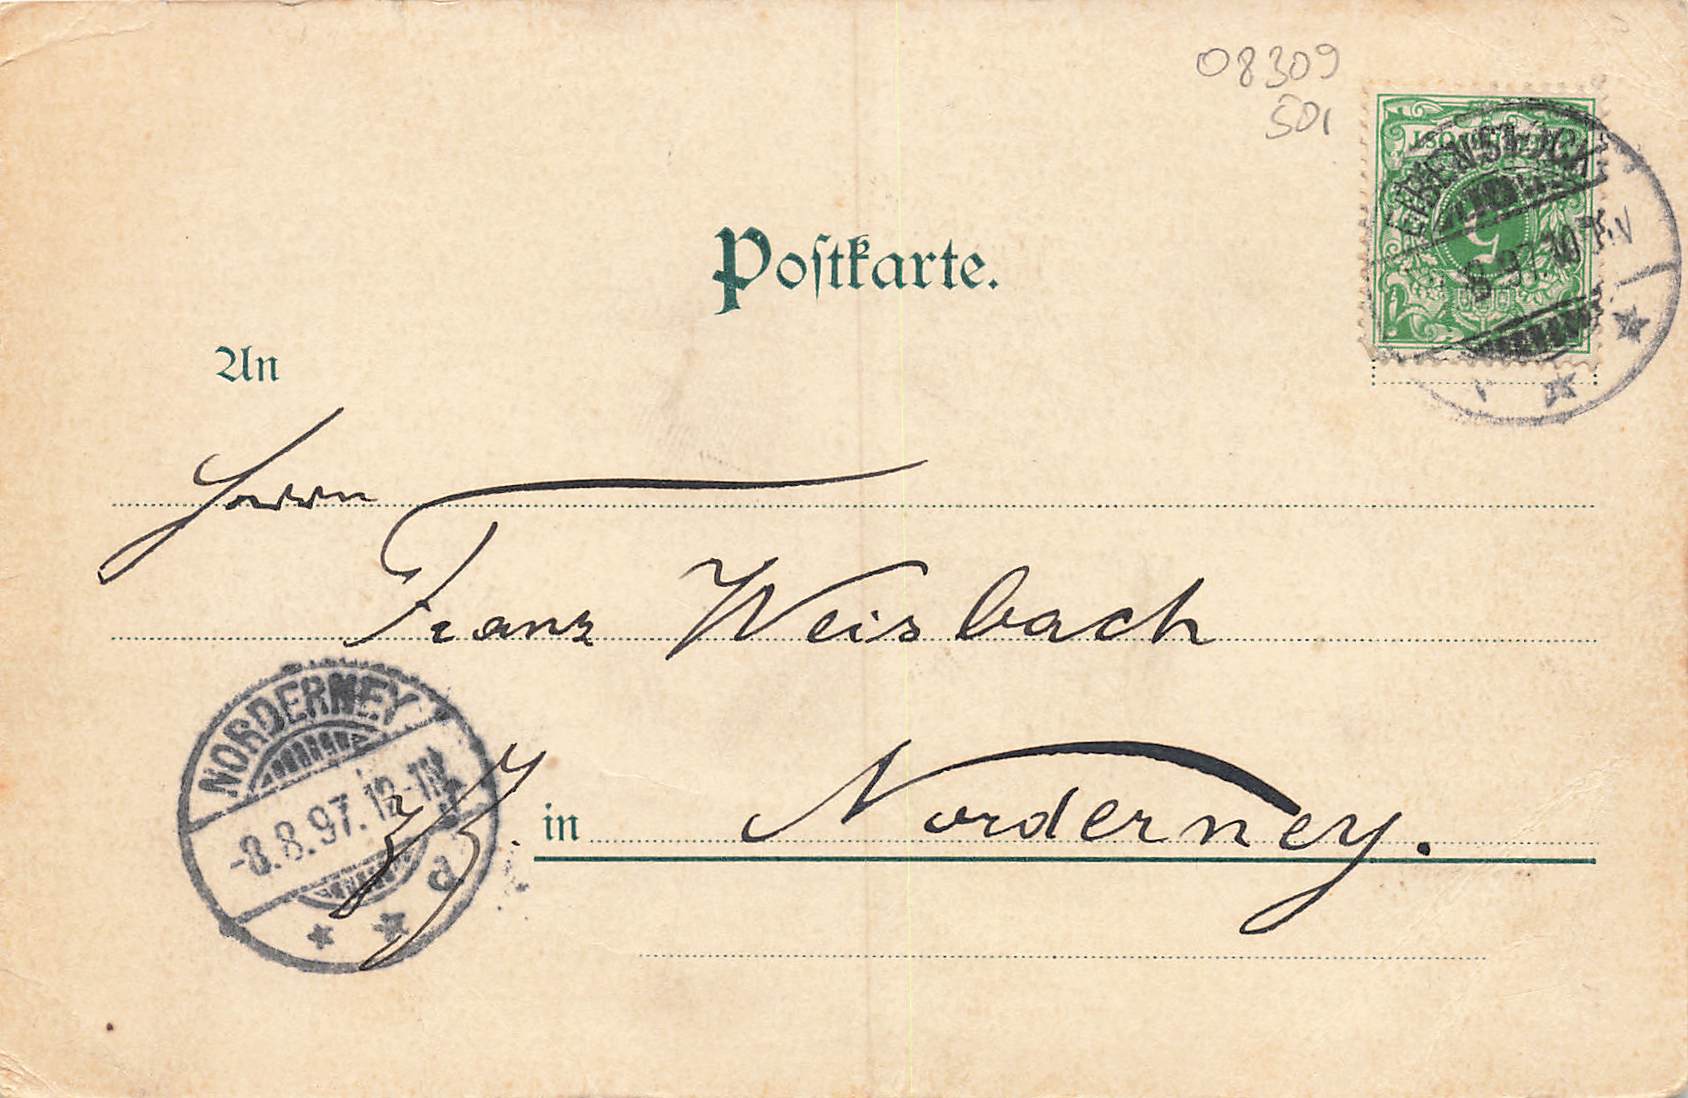 08309
501
REICHSPOST
5
EIBENSTOCK
8 97 10
Postkarte.
An
Herrn
Franz Weisbach
NORDERNEY
-8.8.97. 12-1N
d
z. Z. in Norderney.